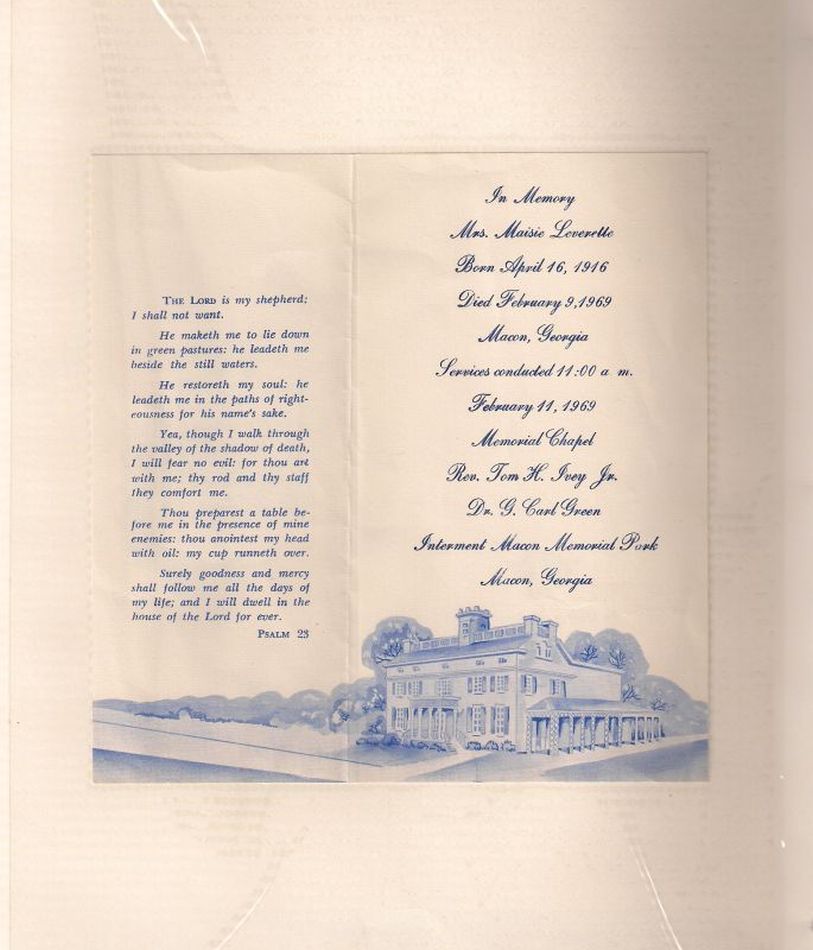 THE LORD is my shepherd;
I shall not want.
He maketh me to lie down
in green pastures: he leadeth me
beside the still waters.
He restoreth my soul: he
leadeth me in the paths of right-
eousness for his name's sake.
Yea, though I walk through
the valley of the shadow of death,
I will fear no evil: for thou art
with me; thy rod and thy staff
they comfort me.
Thou preparest a table be-
fore me in the presence of mine
enemies: thou anointest my head
with oil: my cup runneth over.
Surely goodness and mercy
shall follow me all the days of
my life; and I will dwell in the
house of the Lord for ever.
PSALM 23
In Memory
Mrs. Maisie Leverette
Born April 16, 1916
Died February 9, 1969
Macon, Georgia
Services conducted 11:00 a m.
February 11, 1969
Memorial Chapel
Rev. Tom H. Ivey Jr.
Dr. G. Carl Green
Interment Macon Memorial Park
Macon, Georgia